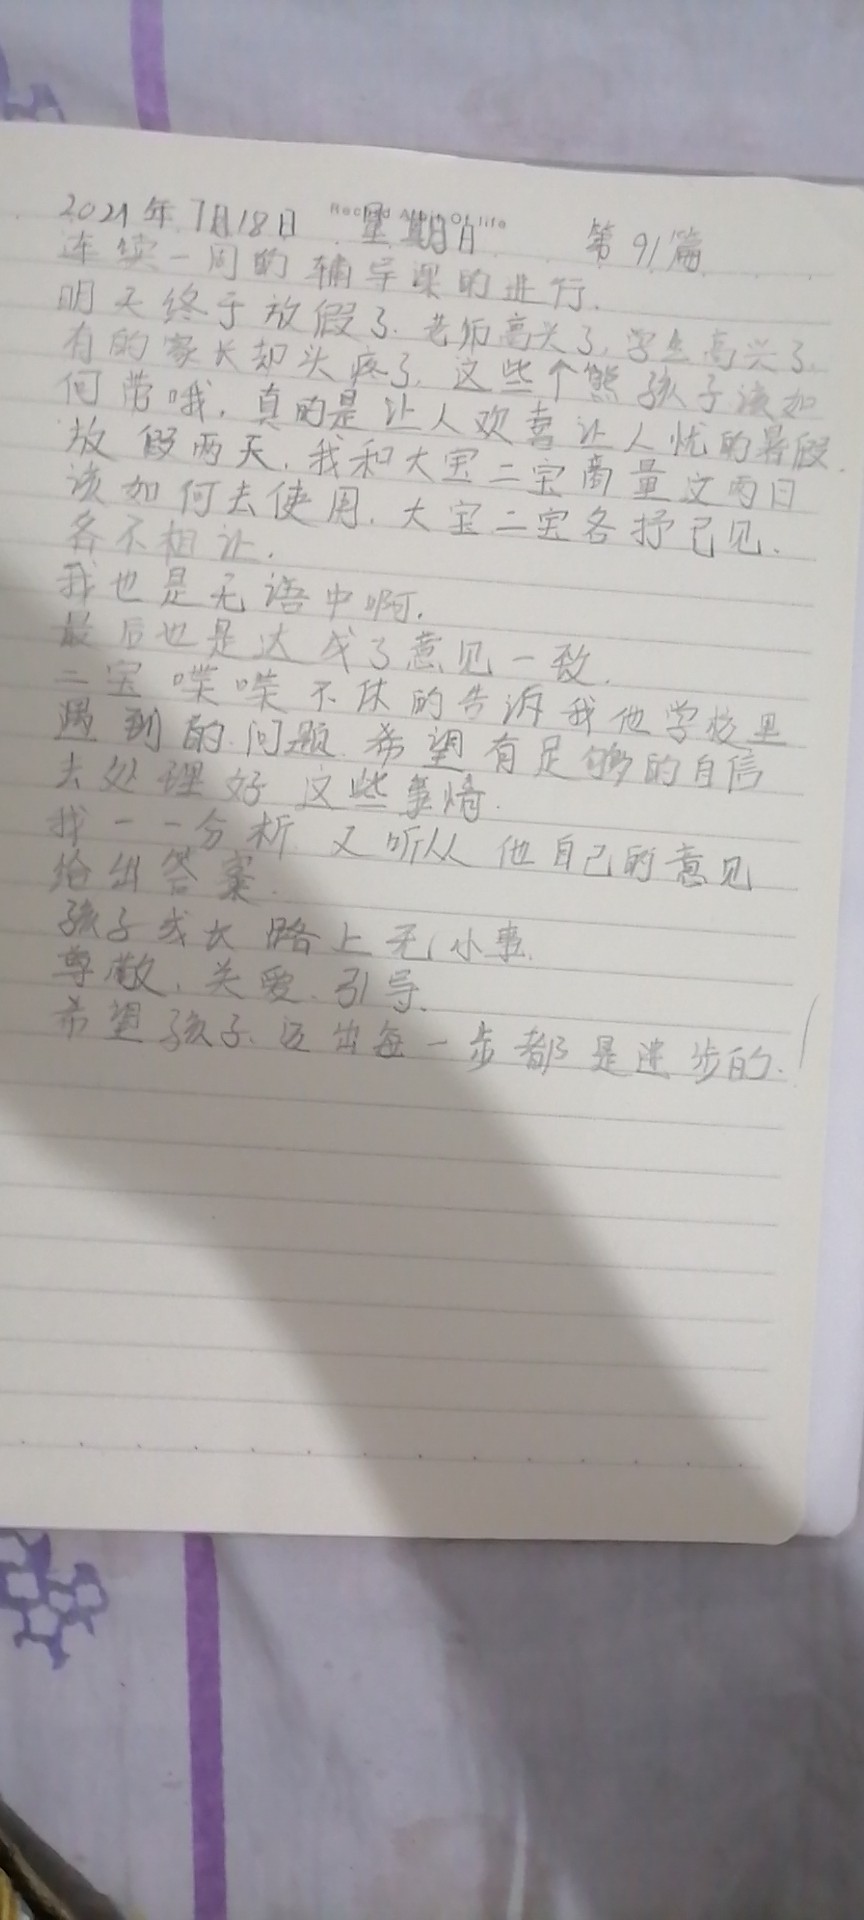 2021年7月18日 星期日 第91篇
连续一周的辅导课的进行.
明天终于放假了.老师高兴了,学生高兴了.
有的家长却头疼了.这些个熊孩子该如
何带哦,真的是让人欢喜让人忧的暑假.
放假两天.我和大宝二宝商量这两日
该如何去使用.大宝二宝各抒己见.
各不相让.
我也是无语中啊.
最后也是达成了意见一致.
二宝喋喋不休的告诉我他学校里
遇到的问题.希望有足够的自信
去处理好这些事情.
我一一分析.又听从他自己的意见
给出答案.
孩子成长路上无小事.
尊敬.关爱.引导.
希望孩子.迈出每一步都是进步的.